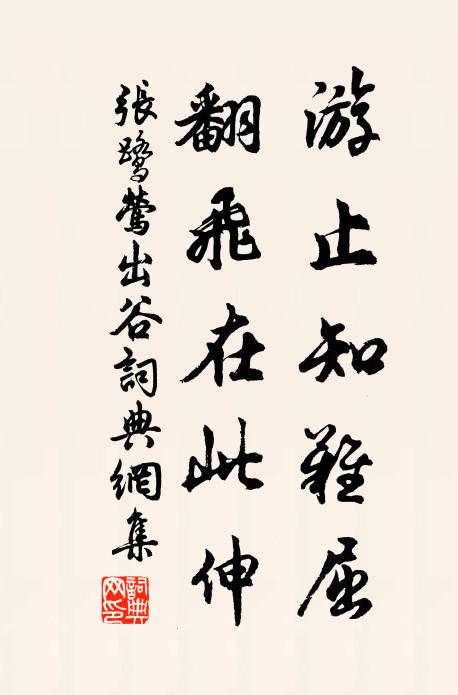 游止知難屈
翻飛在此伸
張鷺鶯出谷詞典網集
詞典网印